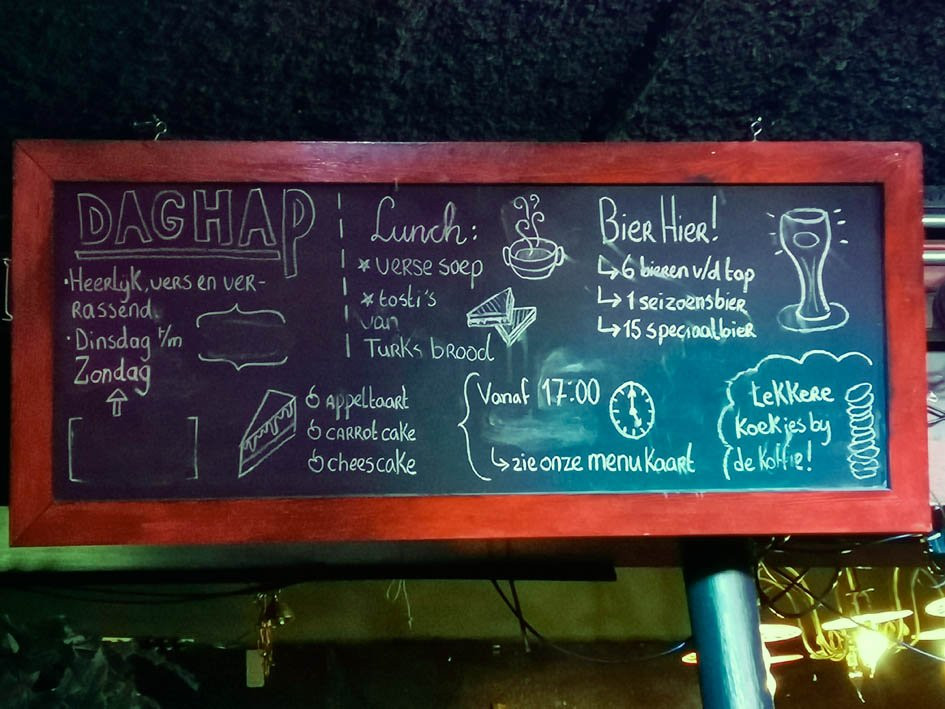 DAGHAP
·Heerlijk, vers en ver-
rassend.
·Dinsdag t/m
Zondag
Lunch:
verse soep
tosti's
van
Turks brood
Bier Hier!
6 bieren v/d tap
1 seizoensbier
15 speciaalbier
appeltaart
carrot cake
cheescake
Vanaf 17:00
zie onze menukaart
Lekkere
koekjes by
de koffie!